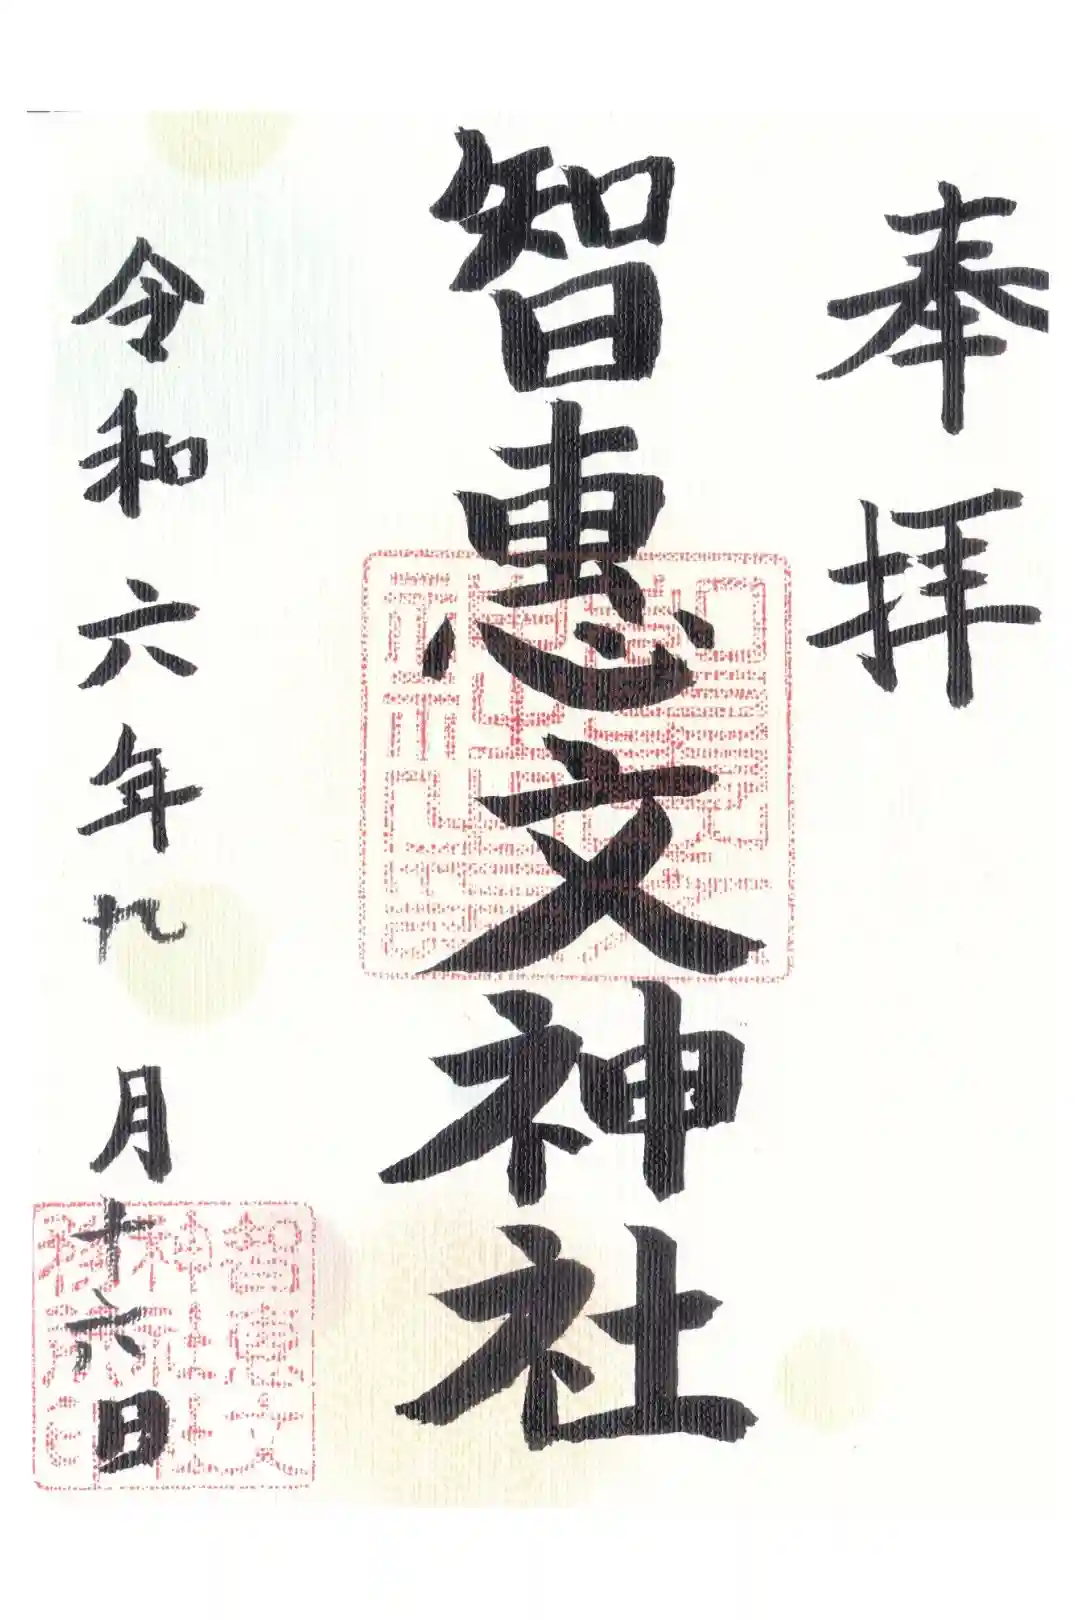 奉拝
智恵文神社
令和六年九月十六日
智恵文
神社